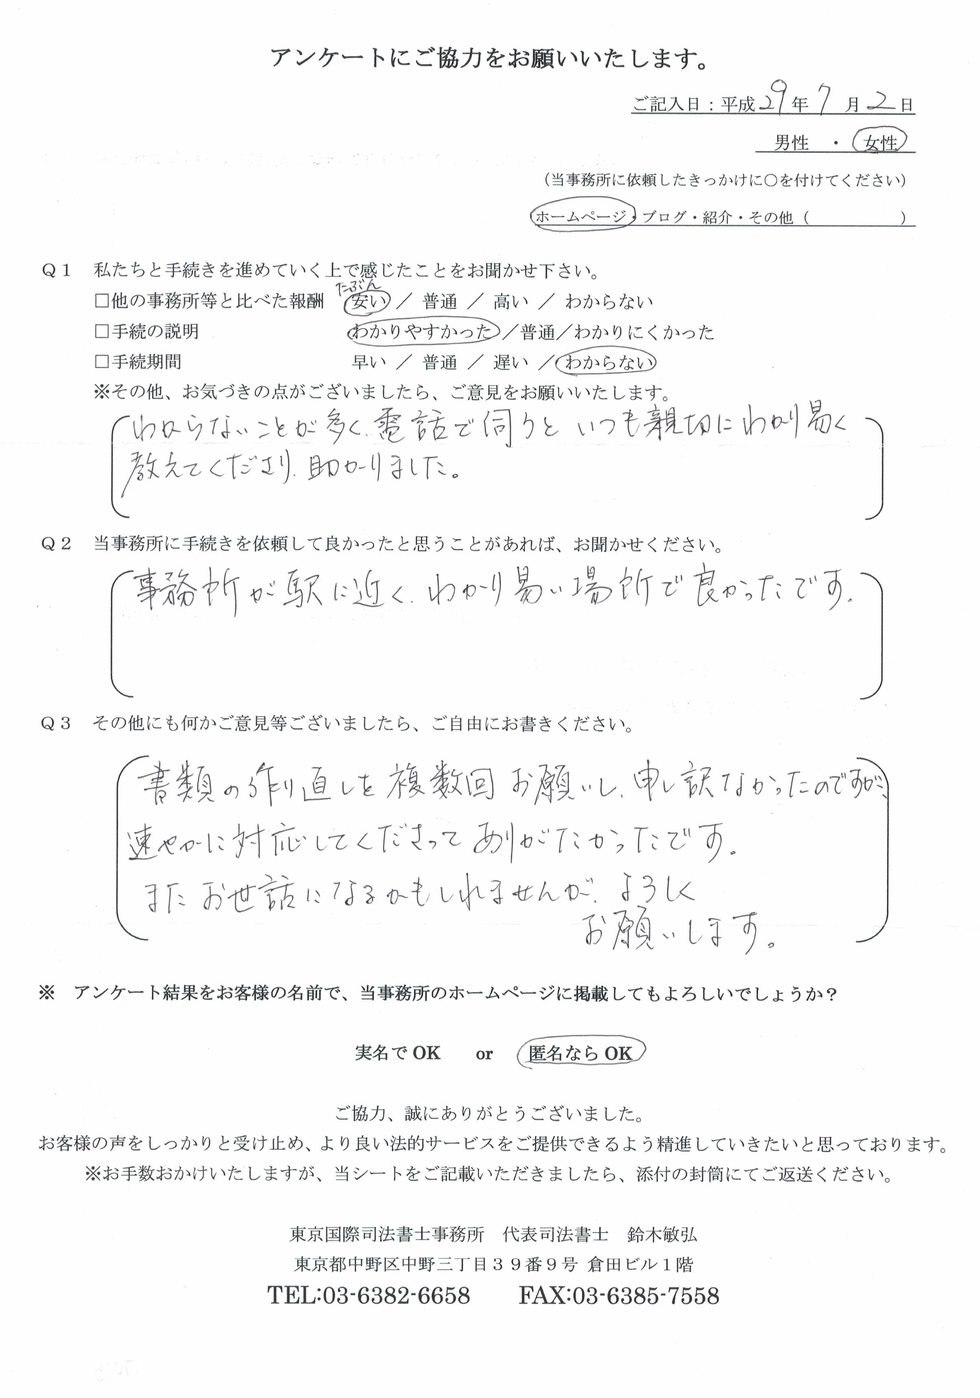 アンケートにご協力をお願いいたします。
ご記入日：平成 29 年 7 月 2 日
男性 ・ 女性
（当事務所に依頼したきっかけに○を付けてください）
ホームページ・ブログ・紹介・その他（　　　　　）
Ｑ１　私たちと手続きを進めていく上で感じたことをお聞かせ下さい。
たぶん
□他の事務所等と比べた報酬　安い ／ 普通 ／ 高い ／ わからない
□手続の説明　わかりやすかった ／普通／わかりにくかった
□手続期間　早い ／ 普通 ／ 遅い ／ わからない
※その他、お気づきの点がございましたら、ご意見をお願いいたします。
わからないことが多く、電話で伺うと いつも親切にわかり易く
教えてくださり、助かりました。
Ｑ２　当事務所に手続きを依頼して良かったと思うことがあれば、お聞かせください。
事務所が駅に近く、わかり易い場所で良かったです。
Ｑ３　その他にも何かご意見等ございましたら、ご自由にお書きください。
書類の作り直しを複数回お願いし、申し訳なかったのですが、
速やかに対応してくださってありがたかったです。
またお世話になるかもしれませんが、よろしく
お願いします。
※　アンケート結果をお客様の名前で、当事務所のホームページに掲載してもよろしいでしょうか？
実名でOK　or　匿名ならOK
ご協力、誠にありがとうございました。
お客様の声をしっかりと受け止め、より良い法的サービスをご提供できるよう精進していきたいと思っております。
※お手数おかけいたしますが、当シートをご記載いただきましたら、添付の封筒にてご返送ください。
東京国際司法書士事務所　代表司法書士　鈴木敏弘
東京都中野区中野三丁目３９番９号 倉田ビル１階
TEL:03-6382-6658　FAX:03-6385-7558